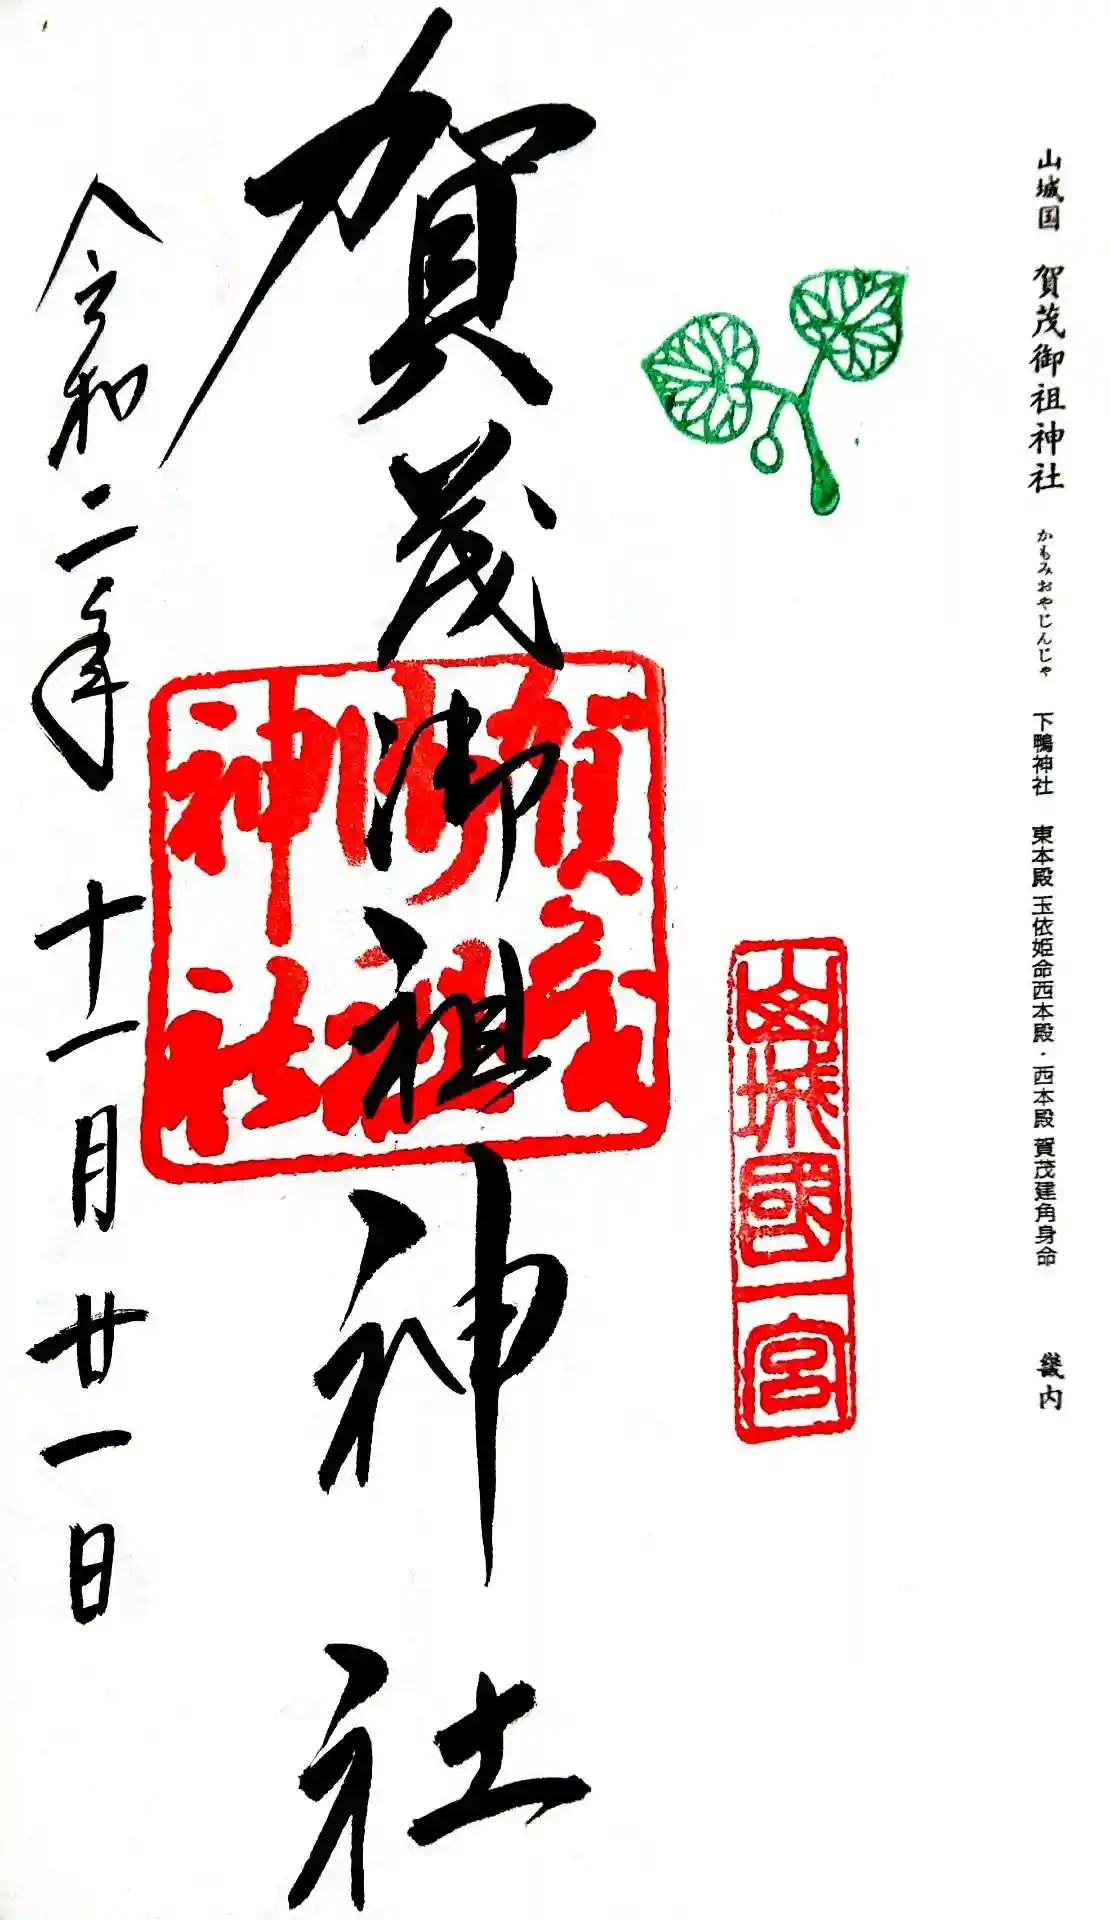 山城国 賀茂御祖神社 かもみおやじんじゃ 下鴨神社 東本殿 玉依姫命西本殿・西本殿 賀茂建角身命 畿内
山城國一宮
賀茂御祖神社
賀茂御祖神社
令和二年十一月廿一日